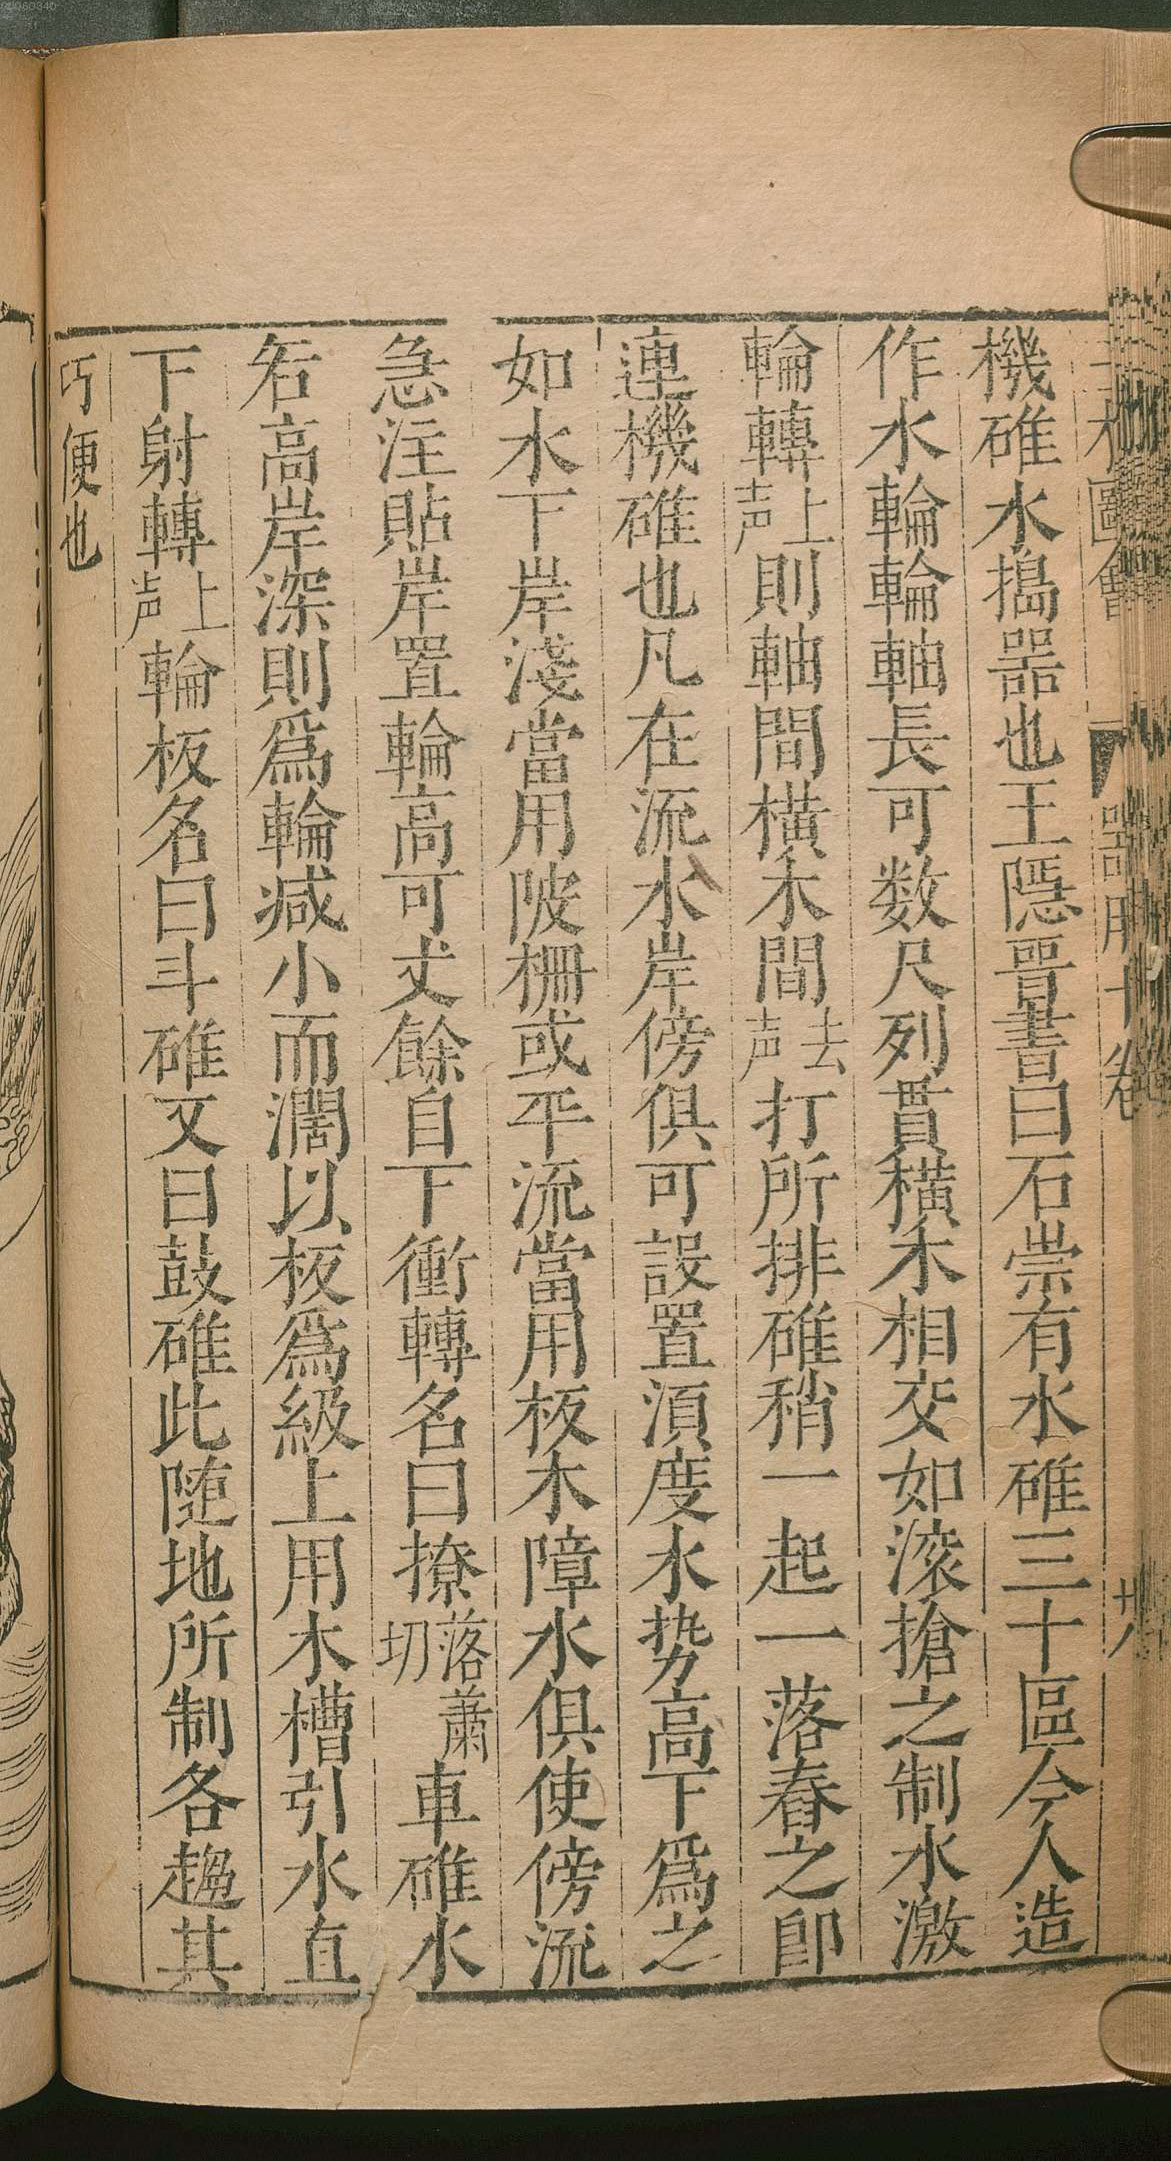 機碓水搗器也王隱晉書曰石崇有水碓三十區今人造
作水輪輪軸長可数尺列貫橫木相交如滚搶之制水激
輪轉上声則軸間橫木間去声打所排碓稍一起一落舂之即
連機碓也凡在流水岸傍俱可設置湏度水势高下爲之
如水下岸淺當用陂柵或平流當用板木障水俱使傍流
急注貼岸置輪高可丈餘自下衝轉名曰撩落蕭切車碓水
若高岸深則爲輪减小而濶以板爲級上用木槽引水直
下射轉上声輪板名曰斗碓又曰鼓碓此随地所制各趨其
巧便也
圖會 器用十卷 廿八